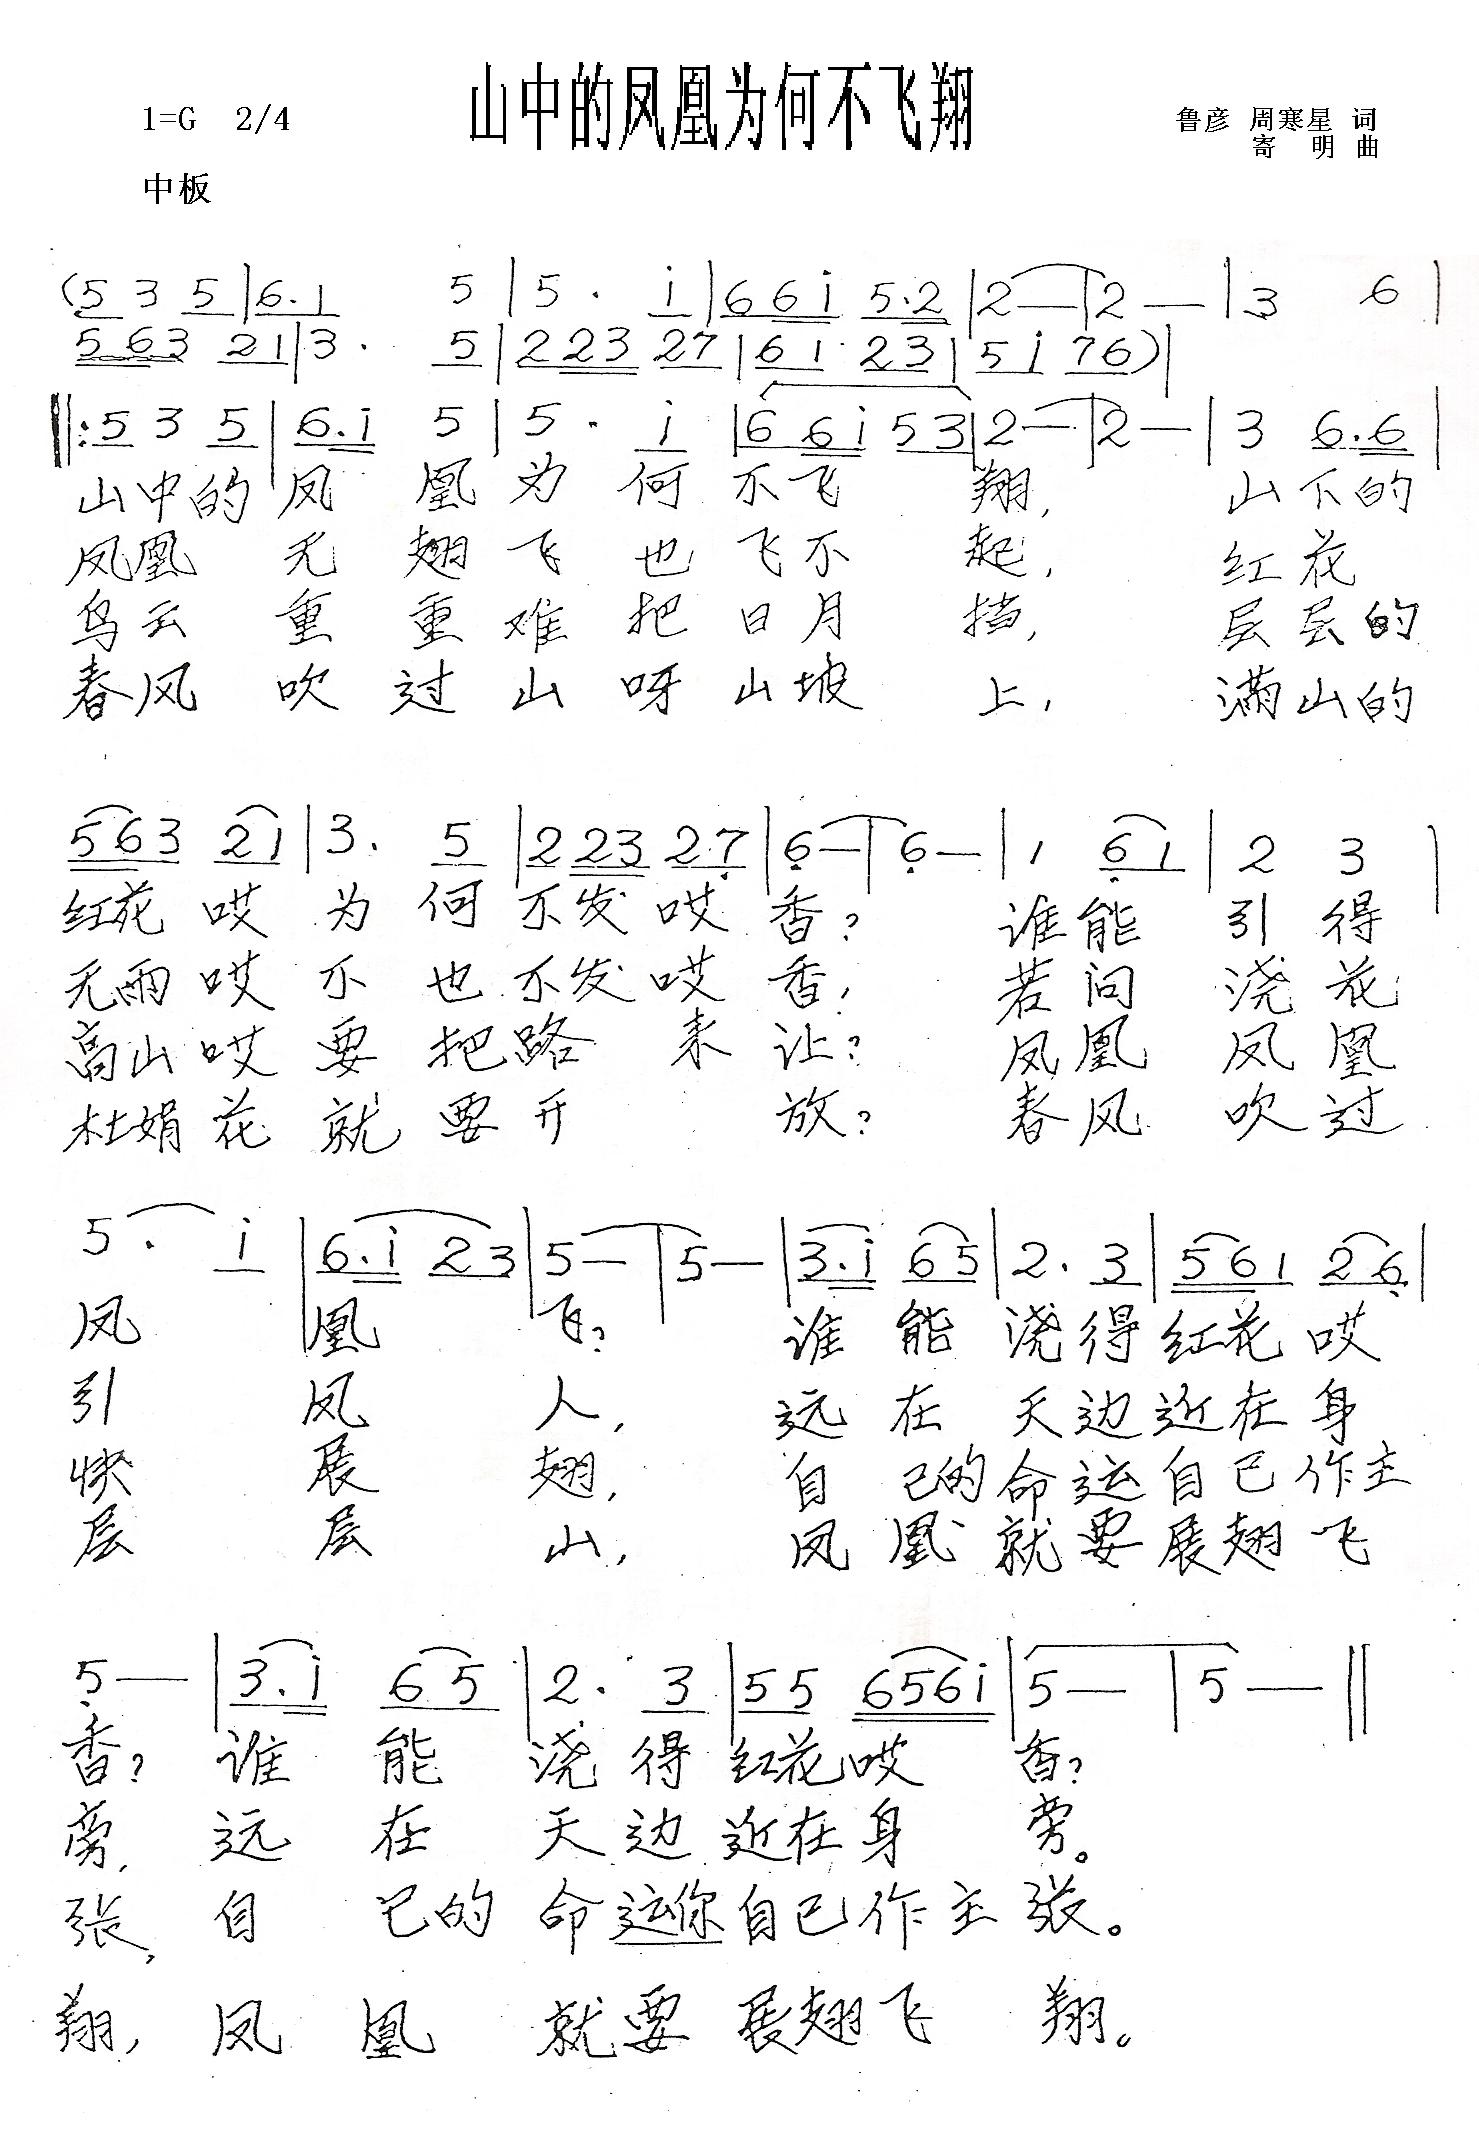 山中的凤凰为何不飞翔
1=G 2/4
鲁彦 周寒星 词
寄 明 曲
中板
(5 3 5|6.1 5|5. i|6 6 i 5.2|2—|2—|3 6|
5 6 3 2 1|3. 5|2 2 3 2 7|6 1 2 3|5 i 7 6)|
‖:5 3 5|6.i 5|5. i|6 6 i 5 3|2—|2—|3 6.6|
山中的凤凰为何不飞翔,山下的
凤凰无翅飞也飞不起,红花
乌云重重难把日月挡,层层的
春风吹过山呀山坡上,满山的
5 6 3 2 1|3. 5|2 2 3 2 7|6—|6—|1 6 1|2 3|
红花哎为何不发哎香?谁能引得
无雨哎不也不发哎香,若问浇花
高山哎要把路来让?凤凰凤凰
杜娟花就要开放?春风吹过
5. i|6.i 2 3|5—|5—|3.i 6 5|2. 3|5 6 1 2 6|
凤凰飞?谁能浇得红花哎
引凤人,远在天边近在身
快展翅,自己的命运自己作主
层层山,凤凰就要展翅飞
5—|3.i 6 5|2. 3|5 5 6 5 6 i|5—|5—‖
香?谁能浇得红花哎香?
旁,远在天边近在身旁。
张,自己的命运你自己作主张。
翔,凤凰就要展翅飞翔。